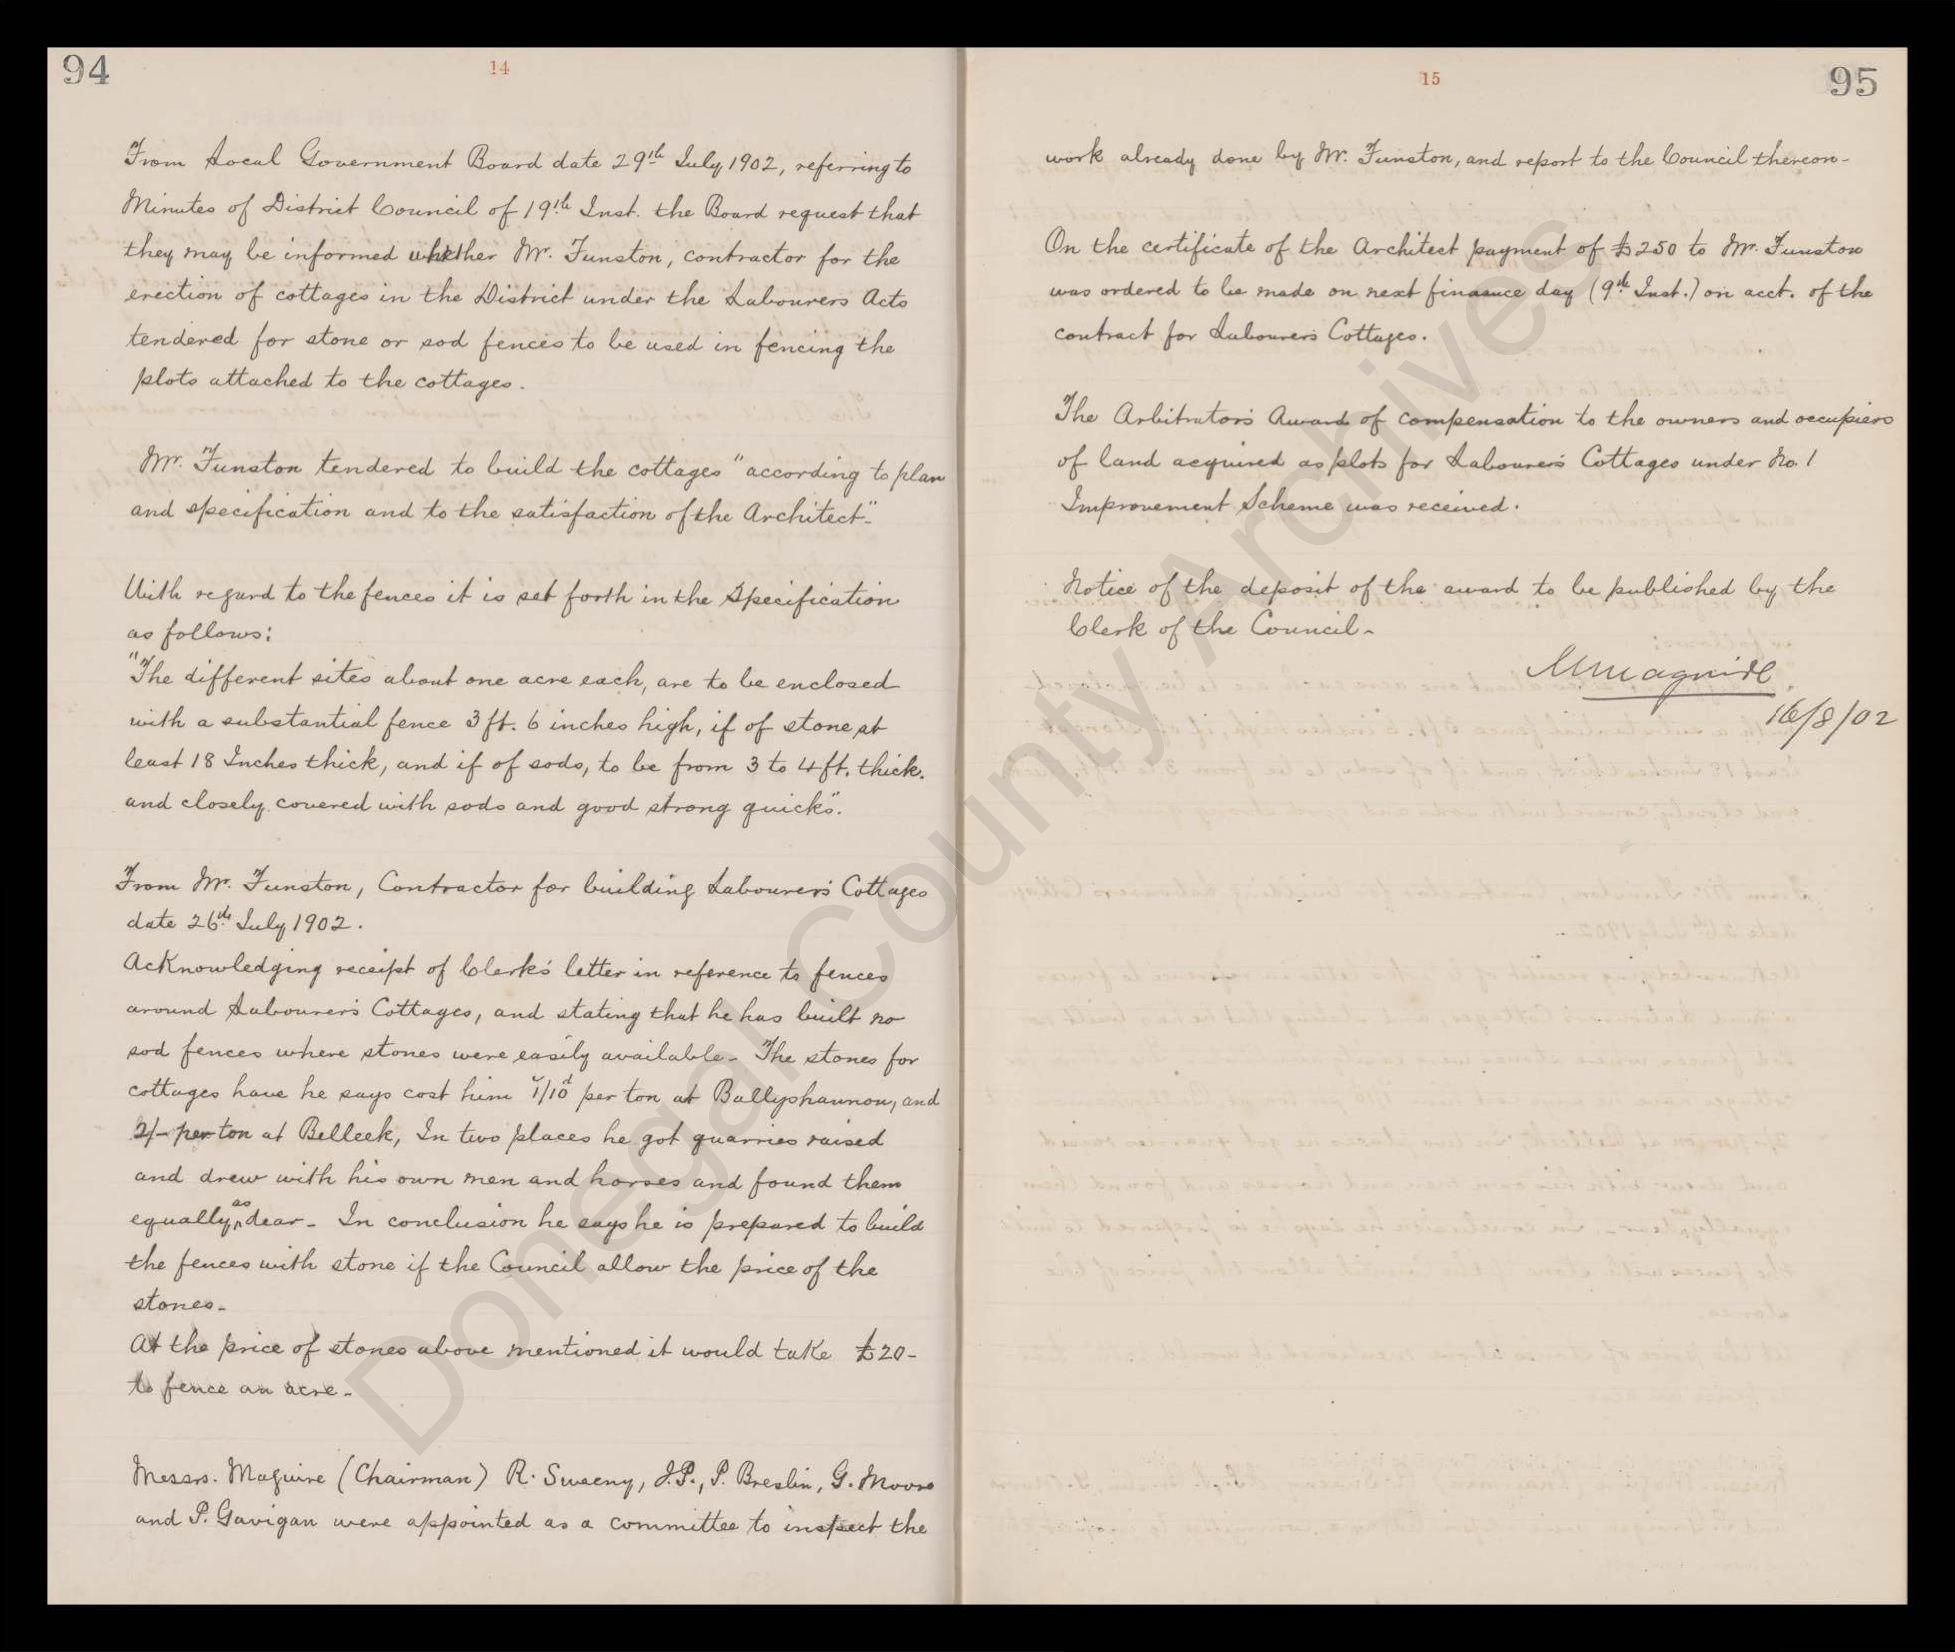 94
14
From Local Government Board date 29th July, 1902, referring to
Minutes of District Council of 19th Inst. the Board request that
they may be informed whether Mr. Funston, contractor for the
erection of cottages in the District under the Labourers Acts
tendered for stone or sod fences to be used in fencing the
plots attached to the cottages.
Mr. Funston tendered to build the cottages "according to plan
and specification and to the satisfaction of the Architect".
With regard to the fences it is set forth in the Specification
as follows:
"The different sites about one acre each, are to be enclosed
with a substantial fence 3 ft. 6 inches high, if of stone at
least 18 Inches thick, and if of sods, to be from 3 to 4 ft. thick.
and closely covered with sods and good strong quicks".
From Mr. Funston, Contractor for building Labourers' Cottages
date 26th July 1902.
Acknowledging receipt of Clerk's letter in reference to fences
around Labourer's Cottages, and stating that he has built no
sod fences where stones were easily available - The stones for
cottages have he says cost him 1/10d per ton at Ballyshannon, and
2/- per ton at Belleek, In two places he got quarries raised
and drew with his own men and horses and found them
equally as dear - In conclusion he says he is prepared to build
the fences with stone if the Council allow the price of the
stones -
At the price of stones above mentioned it would take £20-
to fence an acre -
Messrs. Maguire (Chairman) R. Sweeny, J.P., P. Breslin, G. Moore
and P. Gavigan were appointed as a committee to inspect the
15
95
work already done by Mr. Funston, and report to the Council thereon -
On the certificate of the Architect payment of £250 to Mr. Funston
was ordered to be made on next finance day (9th Inst.) on acct. of the
contract for Labourers Cottages.
The Arbitrator's Award of compensation to the owners and occupiers
of land acquired as plots for Labourer's Cottages under No. 1
Improvement Scheme was received.
Notice of the deposit of the award to be published by the
Clerk of the Council -
Maguire
16/8/02
Donegal County Archives